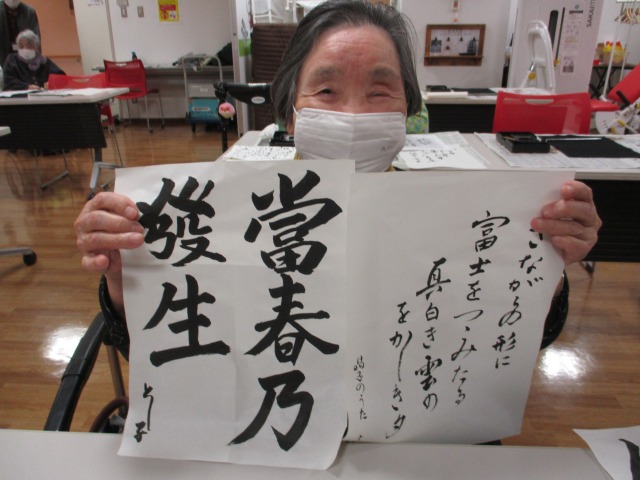 當春乃
發生
とし子
さながらの形に
富士をつゝみたる
真白き雲の
をかしき夕
晶子のうた